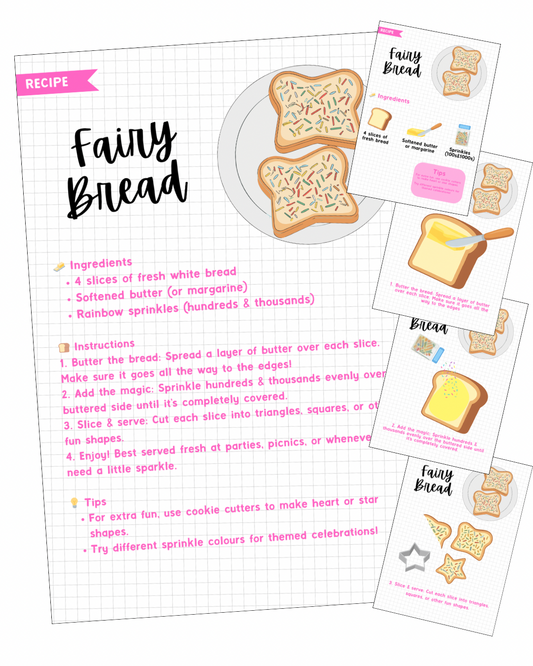 RECIPE
Fairy
Bread
Ingredients
• 4 slices of fresh white bread
• Softened butter (or margarine)
• Rainbow sprinkles (hundreds & thousands)
Instructions
1. Butter the bread: Spread a layer of butter over each slice.
Make sure it goes all the way to the edges!
2. Add the magic: Sprinkle hundreds & thousands evenly over
buttered side until it's completely covered.
3. Slice & serve: Cut each slice into triangles, squares, or ot
fun shapes.
4. Enjoy! Best served fresh at parties, picnics, or wheneve
need a little sparkle.
Tips
• For extra fun, use cookie cutters to make heart or star
shapes.
• Try different sprinkle colours for themed celebrations!
RECIPE
Fairy
Bread
Ingredients
4 slices of
fresh bread
Softened butter
or margarine
Sprinkles
(100s&1000s)
Tips
1. Butter the bread: Spread a layer of butter
over each slice. Make sure it goes all the
way to the edges
Bread
2. Add the magic: Sprinkle hundreds &
thousands evenly over the buttered side until
it's completely covered.
Fairy
Bread
3. Slice & serve: Cut each slice into triangles,
squares, or other fun shapes